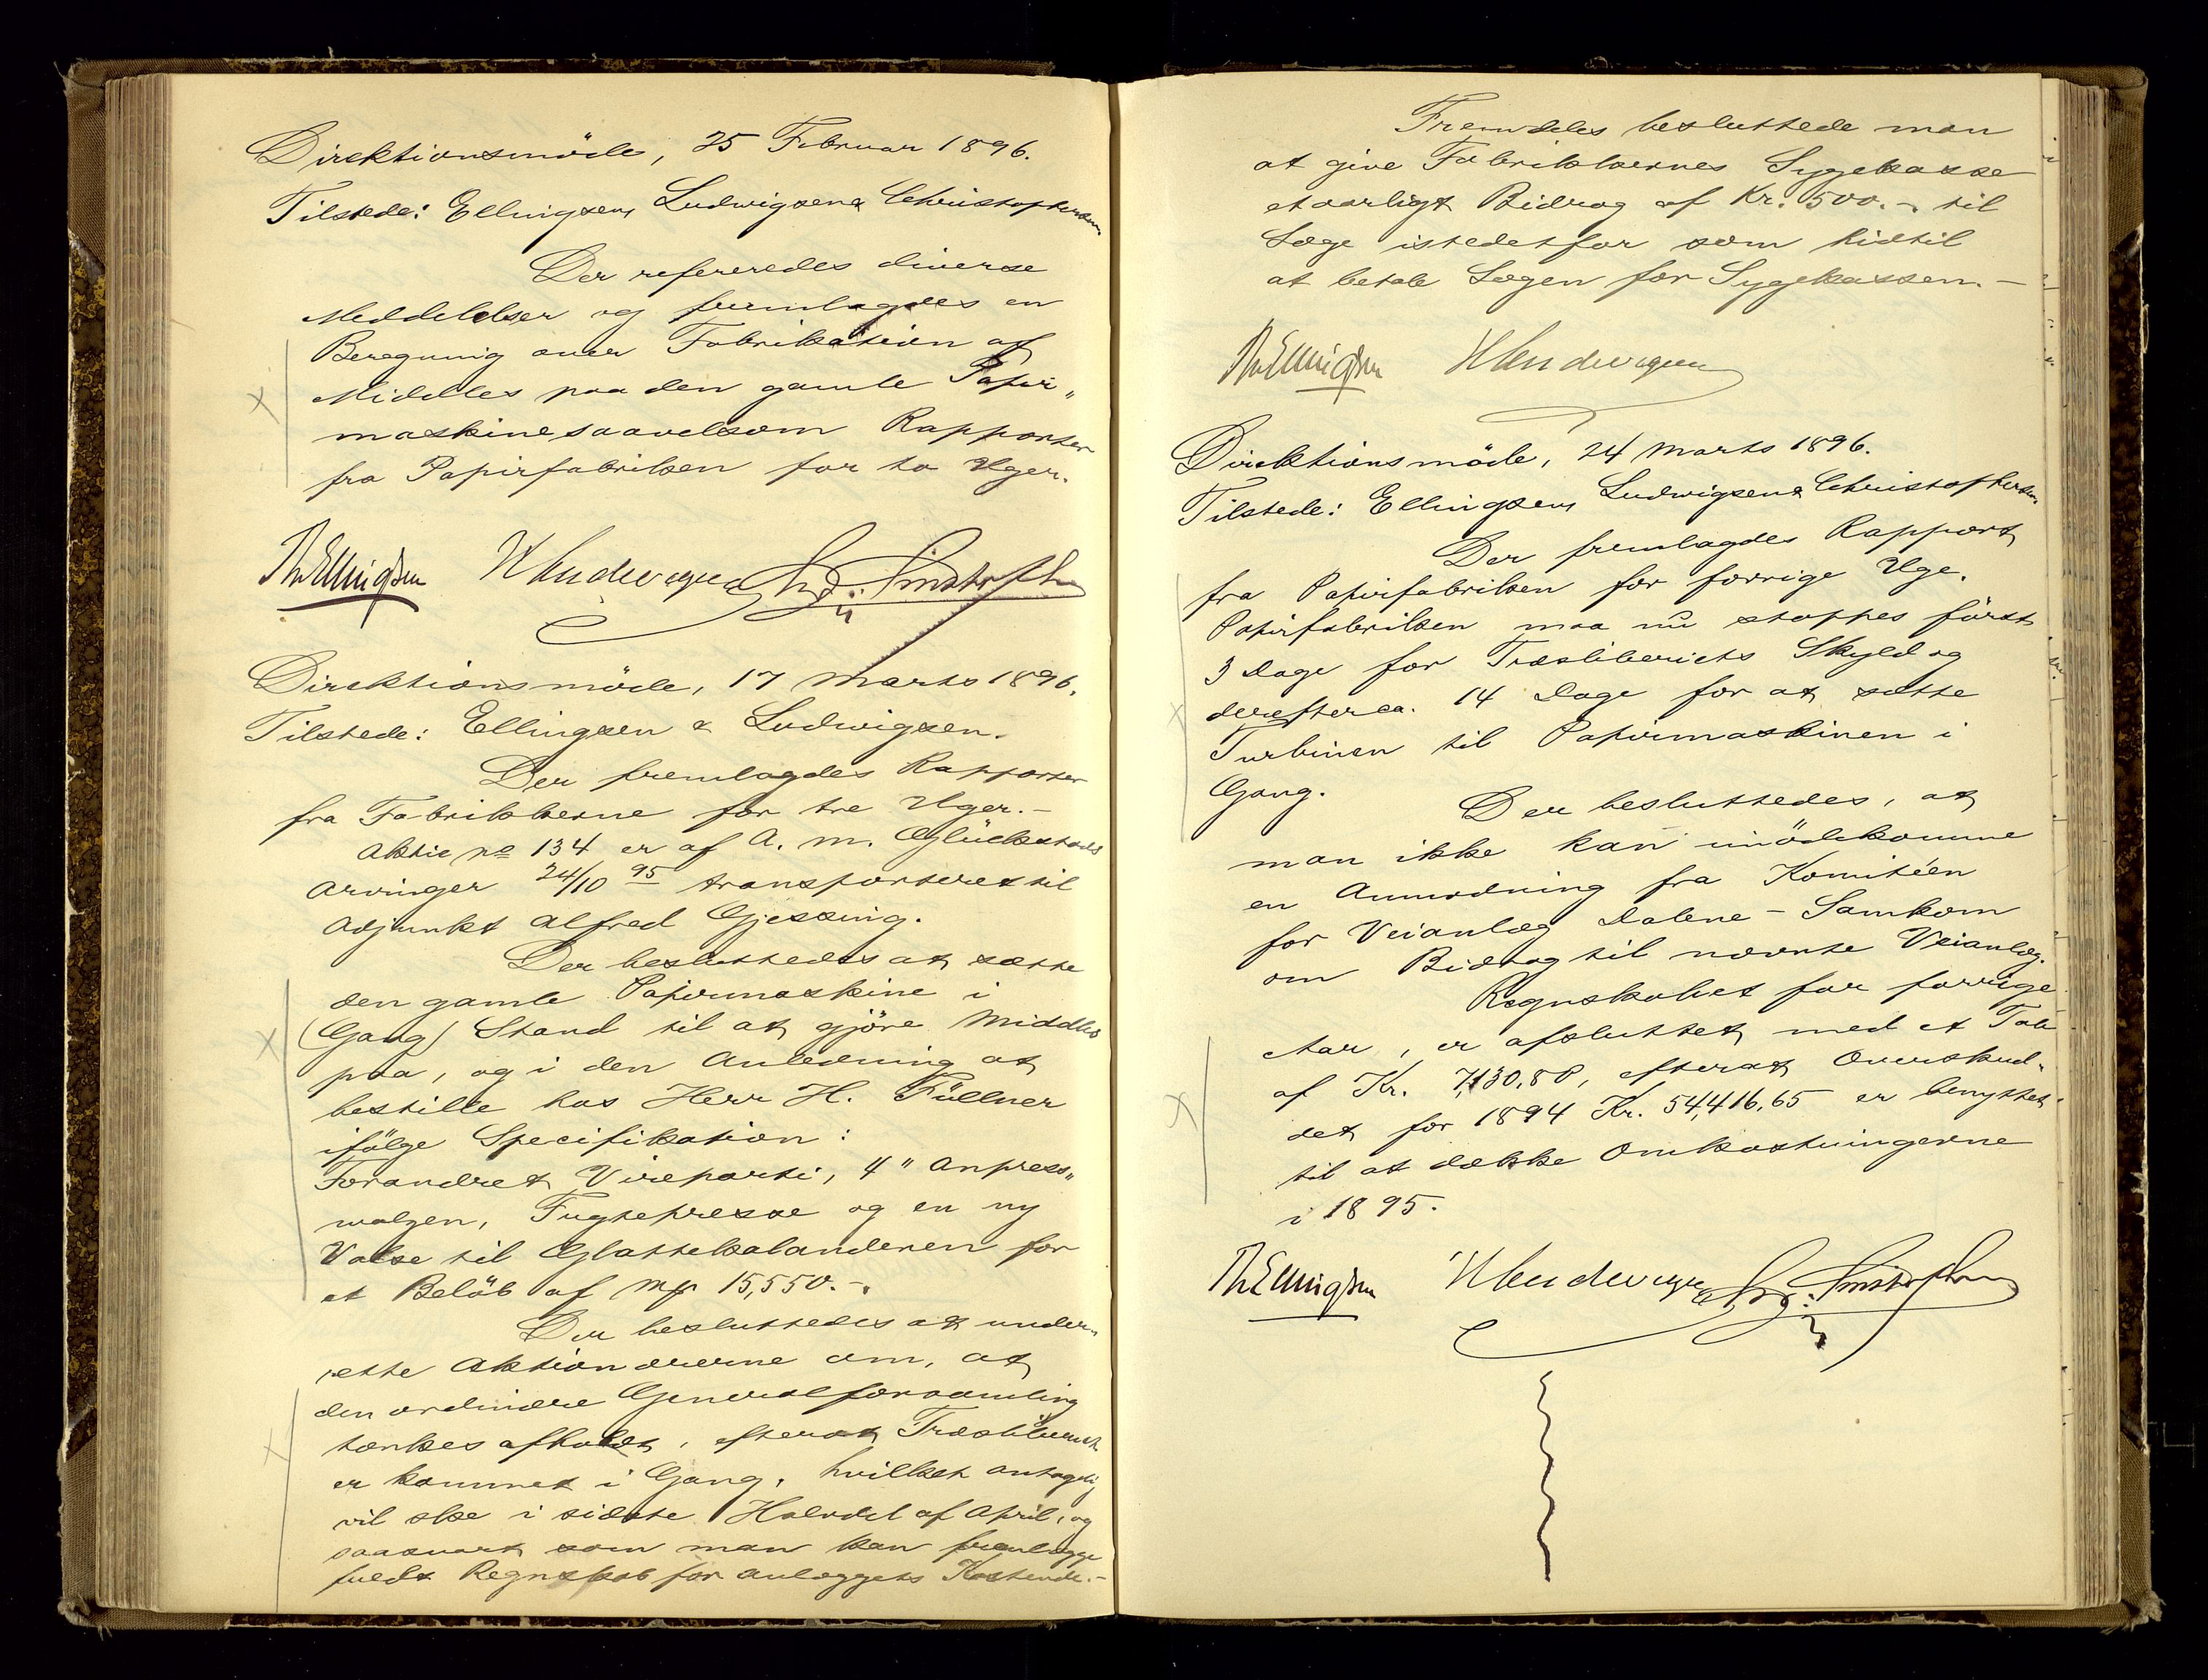 Direktionsmöde, 25 Februar 1896.
Tilstede: Ellingsen, Ludwigsen & Christophersen.
Der refereredes diverse
Meddelelser og fremlagdes en
Beregning over Fabrikation af
Middles paa den gamle Papir„
maskine saavelsom Rapporter
fra Papirfabriken for to Uger.
Th Ellingsen H Ludwigsen Chr. Christophersen
Direktionsmöde, 17 Marts 1896.
Tilstede: Ellingsen & Ludwigsen.
Der fremlagdes Rapporter
fra Fabrikkerne for tre Uger. -
Aktie no 134 er af A. M. Glückstads
Arvinger 24/10 95 transporteret til
Adjunkt Alfred Gjessing.
Der besluttedes at sætte
den gamle Papirmaskine i
(Gang) Stand til at gjöre Middles
paa, og i den Anledning at
bestille hos Herr H. Füllner
ifölge Specifikation:
Forandret Vireparti, 4" Anpress„
walzen, Fugtepresse og en ny
Valse til Glattekalanderen for
et Belöb af Mk 15,550. -
Der besluttedes at under„
rette Aktionærerne om, at
den ordinære Generalforsamling
tænkes afholdt, efterat Træsliberiet
er kommet i Gang, hvilket antagelig
vil ske i sidste Halvdel af April, og
saasnart som man kan fremlægge
fuldt Regnskab for Anlæggets Kostende. -
Fremdeles besluttede man
at give Fabrikkernes Sygekasse
et aarligt Bidrag af Kr. 500. - til
Læge istedetfor som hidtil
at betale Lægen for Sygekassen. -
Th Ellingsen H Ludwigsen
Direktionsmöde, 24 Marts 1896.
Tilstede: Ellingsen, Ludwigsen & Christophersen.
Der fremlagdes Rapport
fra Papirfabriken for forrige Uge.
Papirfabriken maa nu stoppes först
3 Dage for Træsliberiets Skyld og
derefter ca. 14 Dage for at sætte
Turbinen til Papirmaskinen i
Gang.
Der besluttedes, at
man ikke kan imödekomme
en Anmodning fra Komitéen
for Veianlæg Dalene - Samkom
om Bidrag til nævnte Veianlæg.
Regnskabet for forrige
Aar, er afsluttet med et Tab
af Kr. 7,130,80, efterat Overskud„
det for 1894 Kr. 54,416,65 er benyttet
til at dække Omkostningerne
i 1895.
Th Ellingsen H Ludwigsen Chr. Christophersen